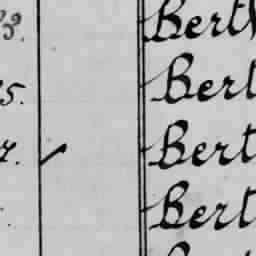 3. Bert
5. Bert
7. Bert
Bert